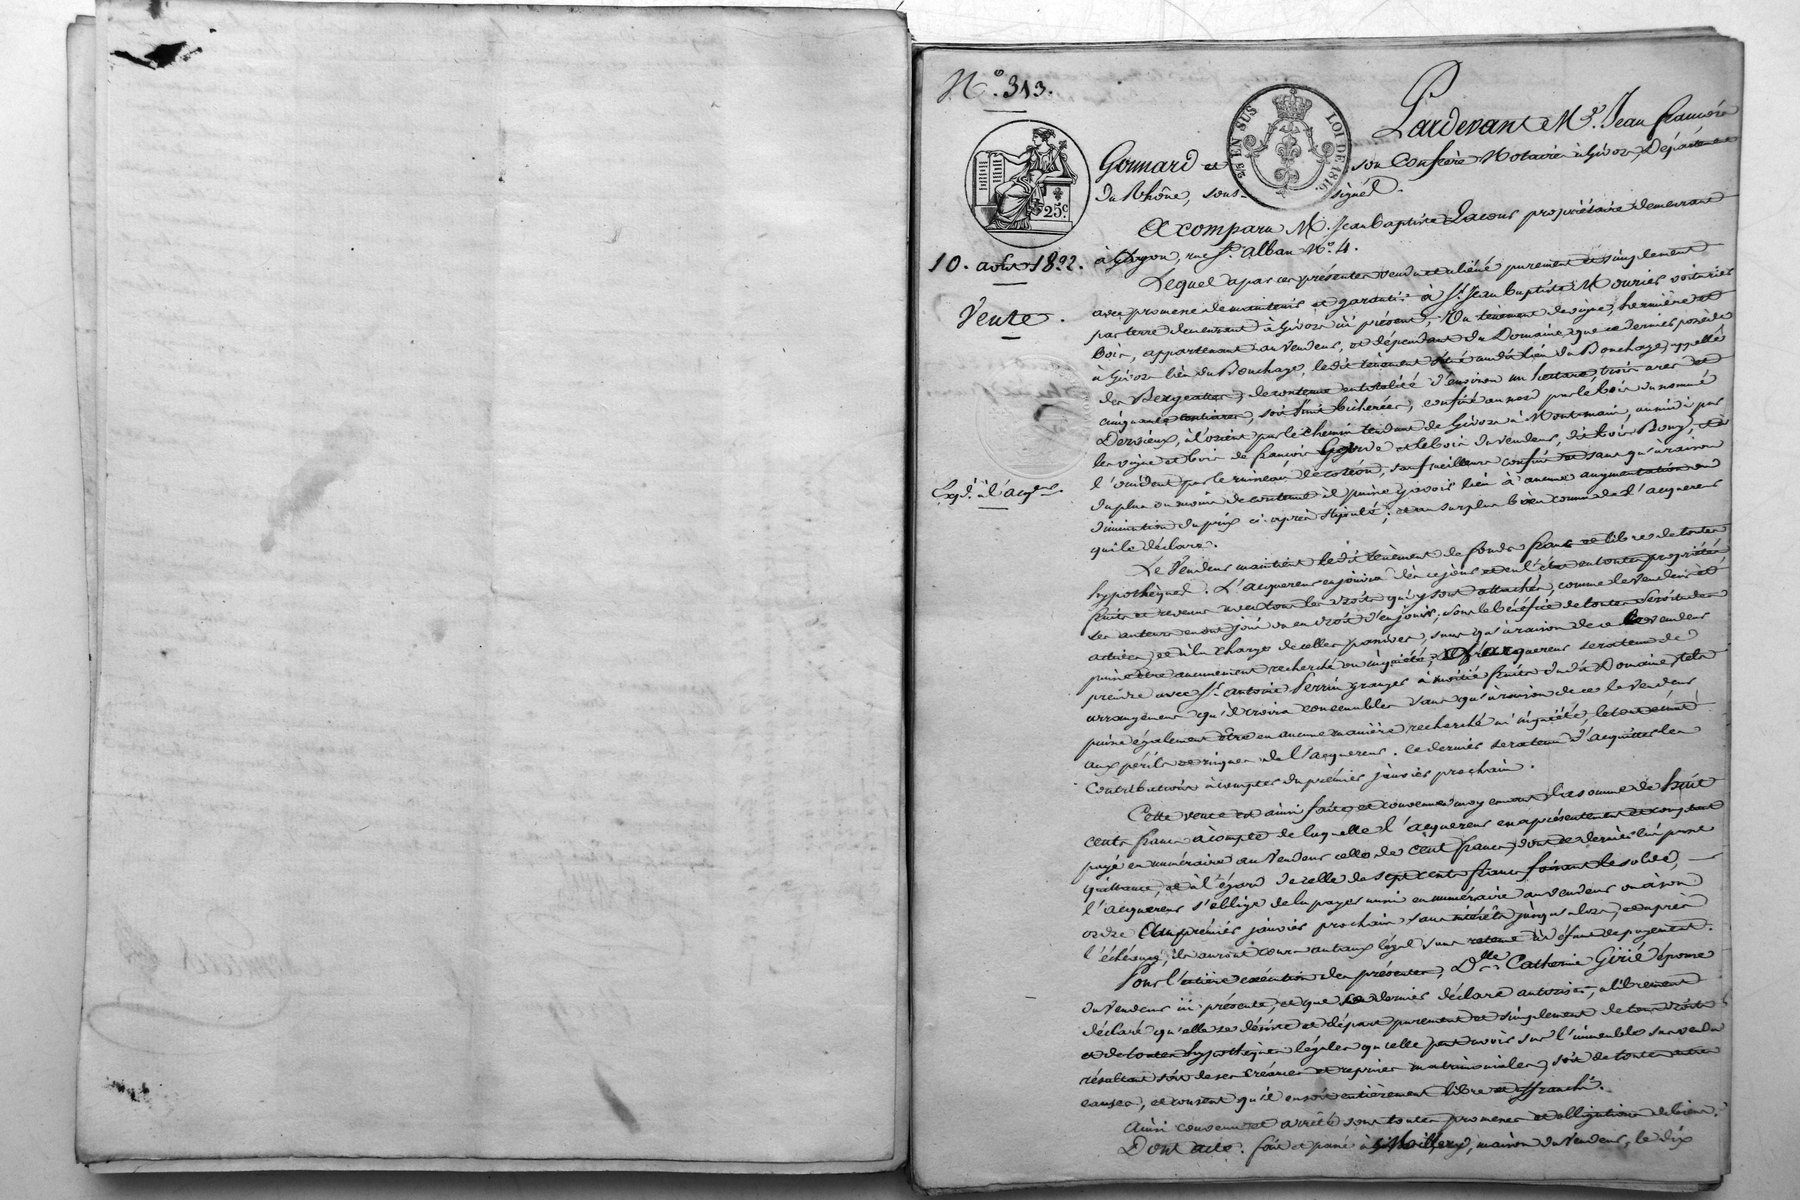 N.° 313.
25.c
2e EN SUS LOI DE 1816.
10. août 1822.
Vente.
Exp.d à l'acq.eur
Pardevant M.e Jean françois
Gonnard et son confrère Notaires à Givors, Département
du Rhône, sous-signés.
A comparu M. Jean baptiste Lacour propriétaire demeurant
à Lyon, rue St. alban N.° 4.
Lequel a par ces présentes vendu et aliéné purement et simplement
avec promesse de maintenir et garantir à Sr. Jean baptiste Mouries voiturier
par terre demeurant à Givors ici présent, Un tènement de vigne, hermière et
bois, appartenant au vendeur, et dépendant du Domaine que ce dernier possède
à Givors lieu du Bouchage, ledit tènement situé audit lieu du Bouchage, appellé
des de contenue en totalité d'environ un hectare trois ares et
cinquante centiares, soit huit bicherées, confiné au nord par le bois du nommé
Dervieux, à l'orient par le chemin tendant de Givors à Montmain, au midi par
les vigne et bois de françois et le bois du vendeur, dit bois Rouge, et à
l'occident par le ruisseau de cotéon, sauf meilleurs confins et sans qu'à raison
du plus ou moins de contenue il puisse y avoir lieu à aucune augmentation ou
diminution du prix ci-après stipulé; et au surplus bien connu de l'acquereur
qui le déclare.
Le Vendeur maintient ledit tènement de fonds franc et libre de toutes
hypothèques. L'acquereur en jouira dès ce jour et en l'état en toute propriété,
fruits et revenus avec tous les droits qui y sont attachés, comme le vendeur et
ses auteurs en ont joui ou eu droit d'en jouir, sous le bénéfice de toutes servitudes
actives, et à la charge de celles passives, sans qu'à raison de ce le vendeur
puisse être aucunement recherché ou inquiété, et l'acquereur sera tenu de
prendre avec Sr. antoine Perrin granger à moitié fruits dudit Domaine, tels
arrangemens qu'il croira convenables sans qu'à raison de ce le Vendeur
puisse également être en aucune manière recherché ni inquiété, le tout étant
aux périls et risques de l'acquereur. ce dernier sera tenu d'acquitter les
Contributions à compter du premier janvier prochain.
Cette vente est ainsi faite et convenue moyennant la somme de huit
cents francs à compte de laquelle l'acquereur en a présentement et comptant
payé en numéraire au Vendeur celle de cent francs, dont ce dernier lui passe
quittance, et à l'égard de celle de sept cents francs faisant le solde,
l'acquereur s'oblige de la payer aussi en numéraire au vendeur ou à son
ordre au premier janvier prochain sans intérêts jusqu'alors, et après
l'échéance, ils auront cours au taux légal sans retenue à défaut de payement.
Pour l'entière exécution des présentes, Dlle. Catherine Girié épouse
du Vendeur ici présente, et que ce dernier déclare autoriser, a librement
déclaré qu'elle se désiste et départ purement et simplement de tous droits
et de toutes hypothèques légales qu'elle peut avoir sur l'immeuble sus vendu
résultant soit de ses créances et reprises matrimoniales, soit de toutes autres
causes, et consent qu'il en soit entièrement libre et affranchi.
Ainsi convenu et arrêté sous toutes promesses et obligations de biens.
Dont acte. fait et passé à maison du Vendeur, le dix